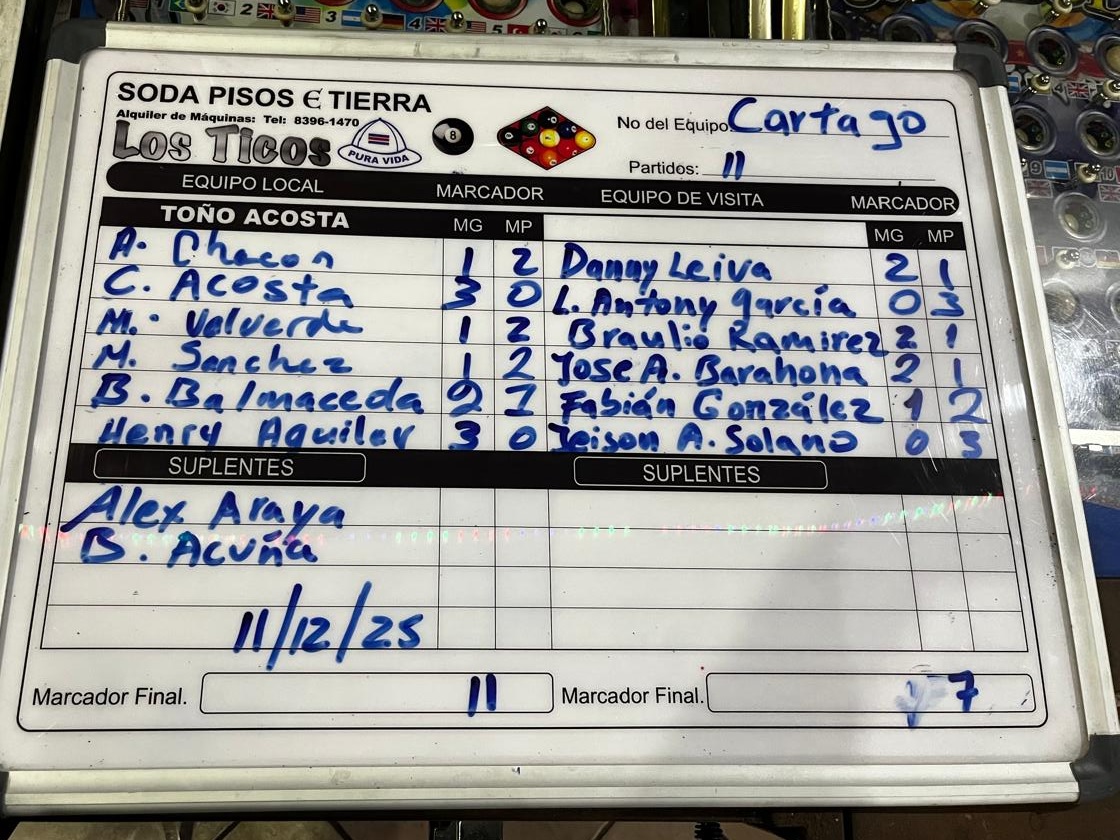 SODA PISOS E TIERRA
Alquiler de Máquinas: Tel: 8396-1470
Los Ticos
PURA VIDA
8
No del Equipo: Cartago
Partidos: 11
EQUIPO LOCAL MARCADOR EQUIPO DE VISITA MARCADOR
TOÑO ACOSTA MG MP MG MP
A. Chacon 1 2 Danny Leiva 2 1
C. Acosta 3 0 L. Antony garcía 0 3
M. Valverde 1 2 Braulio Ramirez 2 1
M. Sanchez 1 2 Jose A. Barahona 2 1
B. Balmaceda 2 1 Fabián González 1 2
Henry Aguilar 3 0 Jeison A. Solano 0 3
SUPLENTES SUPLENTES
Alex Araya
B. Acuña
11/12/25
Marcador Final. 11 Marcador Final. 7